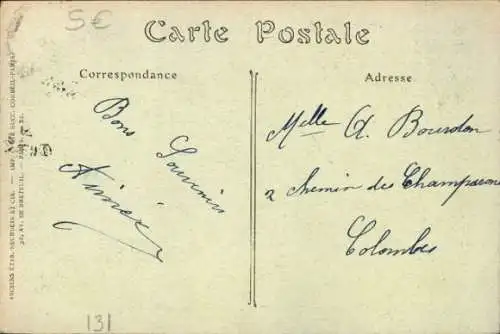 5€
Carte Postale
Correspondance
Adresse
Bons
Souvenirs
Aimée
Melle A. Bourdon
2 Chemin des Champarons
Colombes
131